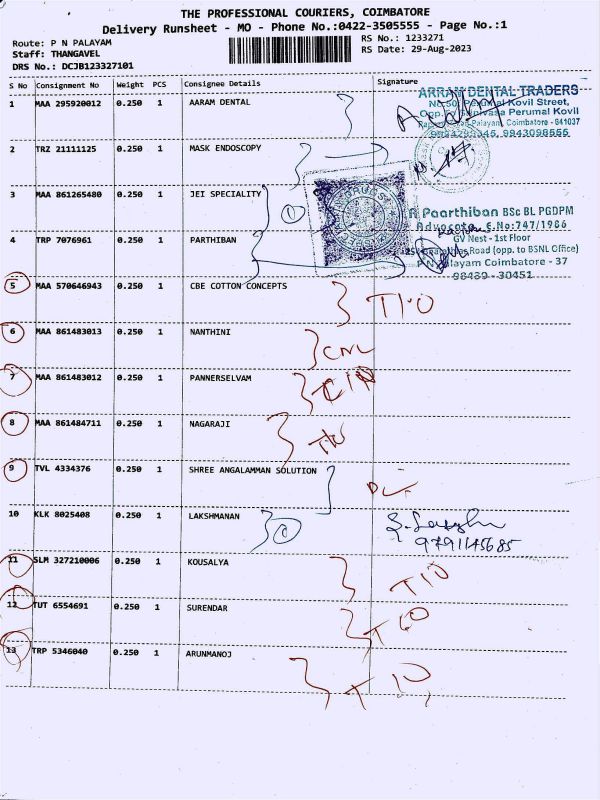 THE PROFESSIONAL COURIERS, COIMBATORE
Delivery Runsheet - MO - Phone No.:0422-3505555 - Page No.:1
Route: P N PALAYAM
RS No.: 1233271
Staff: THANGAVEL
RS Date: 29-Aug-2023
DRS No.: DCJB123327101
S No Consignment No Weight PCS Consignee Details Signature
1 MAA 295920012 0.250 1 AARAM DENTAL
ARRAM DENTAL TRADERS
No:50, Perumal Kovil Street,
Perumal Kovil
Coimbatore - 641037
2 TRZ 21111125 0.250 1 MASK ENDOSCOPY
3 MAA 861265480 0.250 1 JEI SPECIALITY
4 TRP 7076961 0.250 1 PARTHIBAN
Paarthiban BSc BL PGDPM
Advocate E.No:747/1986
GV Nest - 1st Floor
Road (opp. to BSNL Office)
Coimbatore - 37
98439 - 30451
5 MAA 570646943 0.250 1 CBE COTTON CONCEPTS
6 MAA 861483013 0.250 1 NANTHINI
7 MAA 861483012 0.250 1 PANNERSELVAM
8 MAA 861484711 0.250 1 NAGARAJI
9 TVL 4334376 0.250 1 SHREE ANGALAMMAN SOLUTION
10 KLK 8025408 0.250 1 LAKSHMANAN
9791145685
11 SLM 327210006 0.250 1 KOUSALYA
12 TUT 6554691 0.250 1 SURENDAR
13 TRP 5346040 0.250 1 ARUNMANOJ